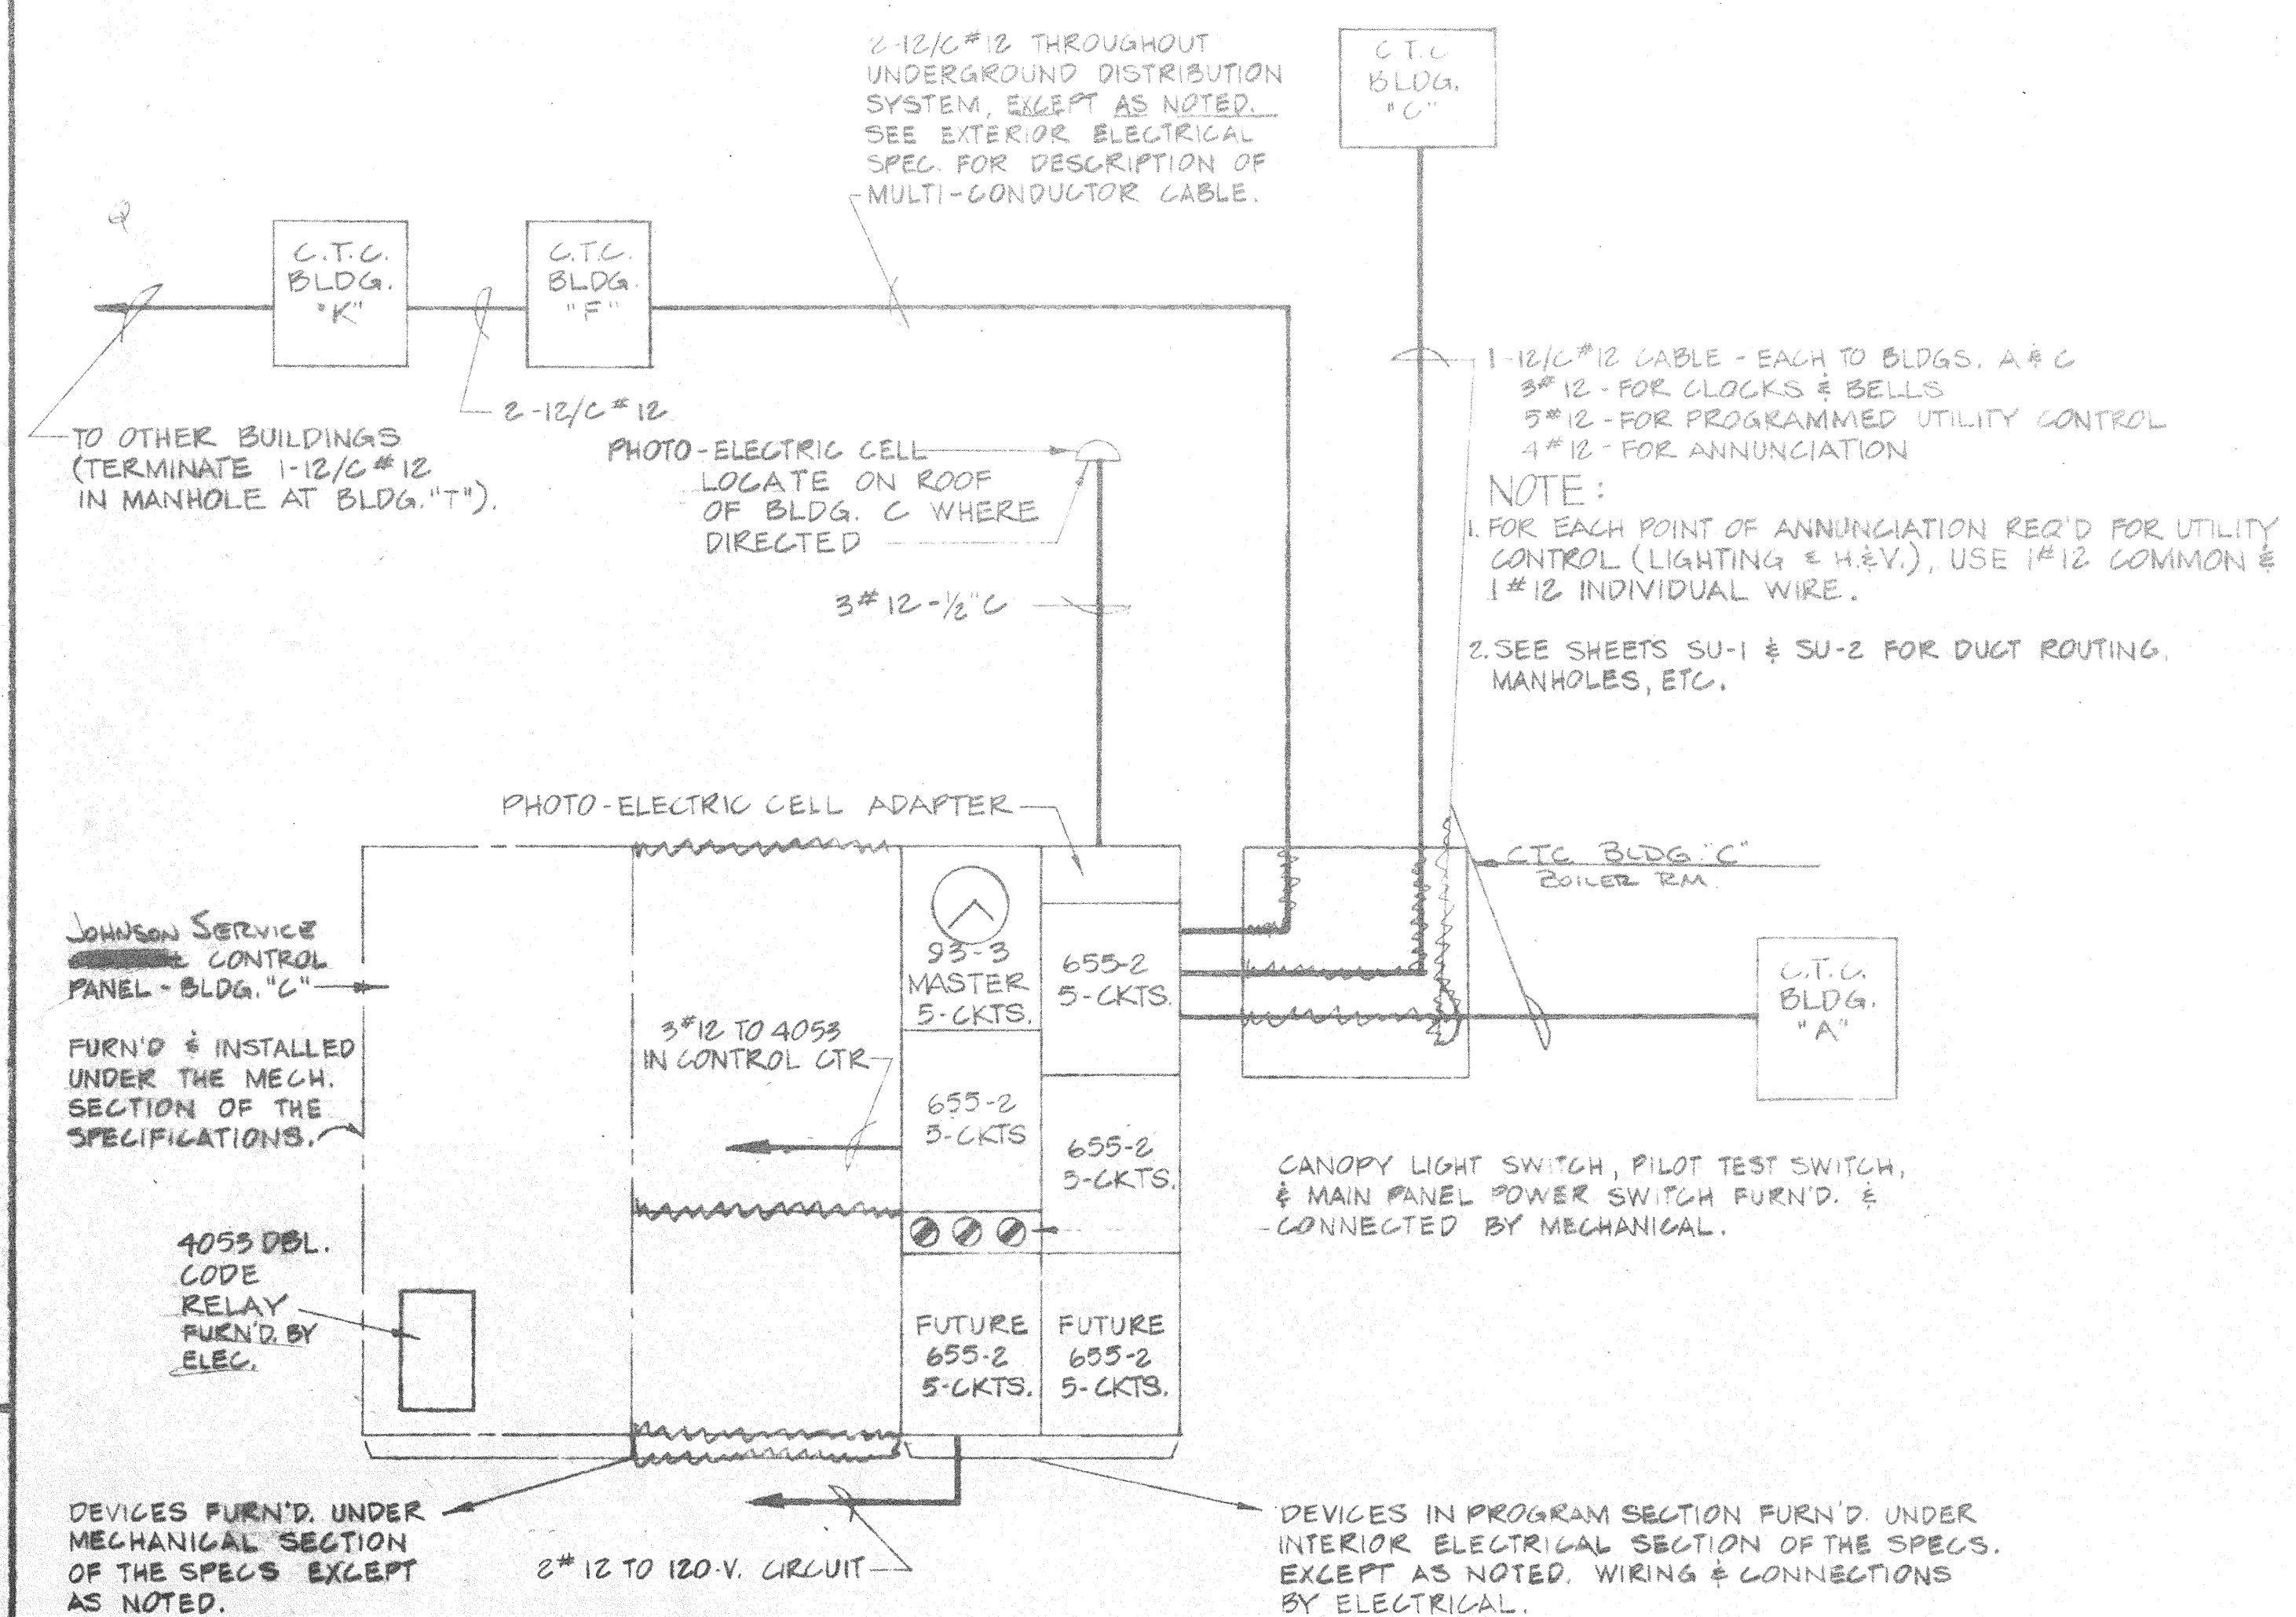 2-12/C #12 THROUGHOUT
UNDERGROUND DISTRIBUTION
SYSTEM, EXCEPT AS NOTED.
SEE EXTERIOR ELECTRICAL
SPEC. FOR DESCRIPTION OF
MULTI-CONDUCTOR CABLE.
C.T.C
BLDG.
"C"
Q
C.T.C.
BLDG.
"K"
C.T.C.
BLDG.
"F"
2-12/C #12
TO OTHER BUILDINGS
(TERMINATE 1-12/C #12
IN MANHOLE AT BLDG. "T").
PHOTO-ELECTRIC CELL
LOCATE ON ROOF
OF BLDG. C WHERE
DIRECTED
3 #12-½"C
1-12/C #12 CABLE - EACH TO BLDGS. A & C
3 #12 - FOR CLOCKS & BELLS
5 #12 - FOR PROGRAMMED UTILITY CONTROL
4 #12 - FOR ANNUNCIATION
NOTE:
1. FOR EACH POINT OF ANNUNCIATION REQ'D FOR UTILITY
CONTROL (LIGHTING & H.&V.), USE 1 #12 COMMON &
1 #12 INDIVIDUAL WIRE.
2. SEE SHEETS SU-1 & SU-2 FOR DUCT ROUTING,
MANHOLES, ETC.
PHOTO-ELECTRIC CELL ADAPTER
CTC BLDG. "C"
BOILER RM
JOHNSON SERVICE
CONTROL
PANEL - BLDG. "C"
FURN'D & INSTALLED
UNDER THE MECH.
SECTION OF THE
SPECIFICATIONS.
93-3
MASTER
5-CKTS.
655-2
5-CKTS.
3 #12 TO 4053
IN CONTROL CTR
655-2
5-CKTS
655-2
5-CKTS.
C.T.C.
BLDG.
"A"
CANOPY LIGHT SWITCH, PILOT TEST SWITCH,
& MAIN PANEL POWER SWITCH FURN'D. &
CONNECTED BY MECHANICAL.
4053 DBL.
CODE
RELAY
FURN'D. BY
ELEC.
FUTURE
655-2
5-CKTS.
FUTURE
655-2
5-CKTS.
DEVICES FURN'D. UNDER
MECHANICAL SECTION
OF THE SPECS EXCEPT
AS NOTED.
2 #12 TO 120-V. CIRCUIT
DEVICES IN PROGRAM SECTION FURN'D. UNDER
INTERIOR ELECTRICAL SECTION OF THE SPECS.
EXCEPT AS NOTED. WIRING & CONNECTIONS
BY ELECTRICAL.